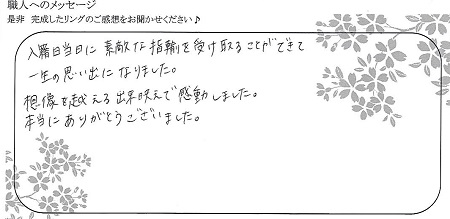 職人へのメッセージ
是非 完成したリングのご感想をお聞かせください♪
入籍日当日に 素敵な指輪を受け取ることができて
一生の思い出になりました。
想像を越える出来映えで感動しました。
本当にありがとうございました。